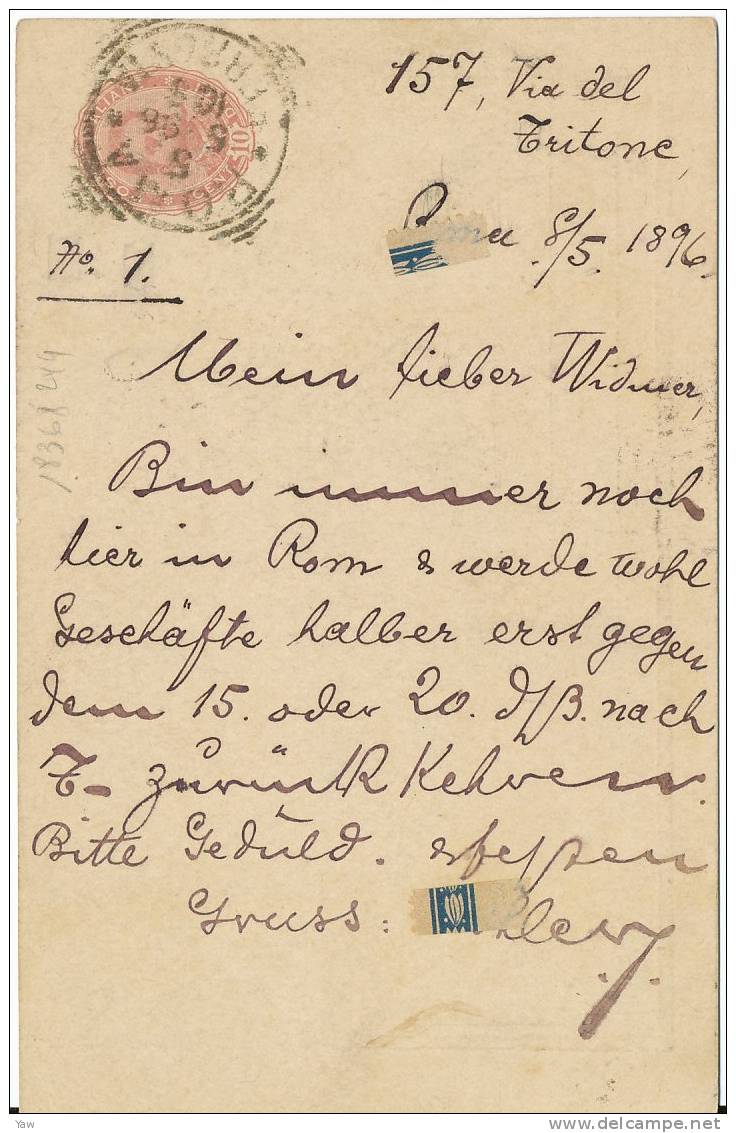 157, Via del
Tritone,
8/5. 1896,
No. 1.
Mein lieber Widmer,
Bin immer noch
hier in Rom & werde wohl
Geschäfte halber erst gegen
dem 15. oder 20. d/ß. nach
T- zurück kehren.
Bitte Geduld. & besten
Gruss:
18368 249
10
Yaw
delcampe.net